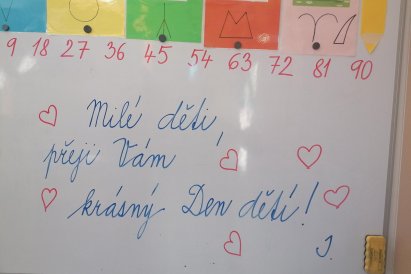 9 18 27 36 45 54 63 72 81 90
Milé děti,
přeji Vám
krásný Den dětí!
J.